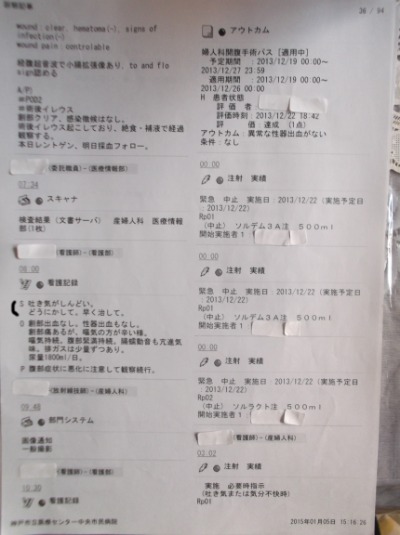 診療記事
36 / 94
wound : clear, hematoma(-), signs of
infection(-)
wound pain : controlable
経腹超音波で小腸拡張像あり、to and flo
sign認める
A/P)
#POD2
#術後イレウス
創部クリア、感染徴候はなし。
術後イレウス起こしており、絶食・補液で経過
観察する。
本日レントゲン、明日採血フォロー。
(委託職員)-(医療情報部)
07:34
スキャナ
検査結果(文書サーバ) 産婦人科 医療情報
部(1枚)
(看護師)-(看護部)
08:00
看護記録
S 吐き気がしんどい。
どうにかして。早く治して。
O 創部出血なし。性器出血もなし。
創部痛あるが、嘔気の方が辛い様。
嘔気持続。腹部緊満持続。腸蠕動音も亢進気
味。排ガスは少量ずつあり。
尿量1800ml/日。
P 腹部症状に悪化に注意して観察続行。
(放射線技師)-(産婦人科)
09:48
部門システム
画像通知
一般撮影
(看護師)-(看護部)
10:20
看護記録
神戸市立医療センター中央市民病院
アウトカム
婦人科開腹手術パス [適用中]
予定期間 : 2013/12/19 00:00～
2013/12/27 23:59
適用期間 : 2013/12/19 00:00～
2013/12/26 00:00
H 患者状態
評価者 :
評価時刻 : 2013/12/22 18:42
評価 達成 (1点)
アウトカム : 異常な性器出血がない
条件 : なし
00:00
注射 実績
緊急 中止 実施日 : 2013/12/22 (実施予定日
: 2013/12/22)
Rp01
(中止) ソルデム3A注 500ml
開始実施者1 :
00:00
注射 実績
緊急 中止 実施日 : 2013/12/22 (実施予定日
: 2013/12/22)
Rp01
(中止) ソルデム3A注 500ml
開始実施者1
00:00
注射 実績
緊急 中止 実施日 : 2013/12/22 (実施予定日
: 2013/12/22)
Rp02
(中止) ソルラクト注 500ml
開始実施者1 :
(看護師)-(産婦人科)
03:02
注射 実績
実施 必要時指示
(吐き気または気分不快時)
Rp01
2015年01月05日 15:16:26